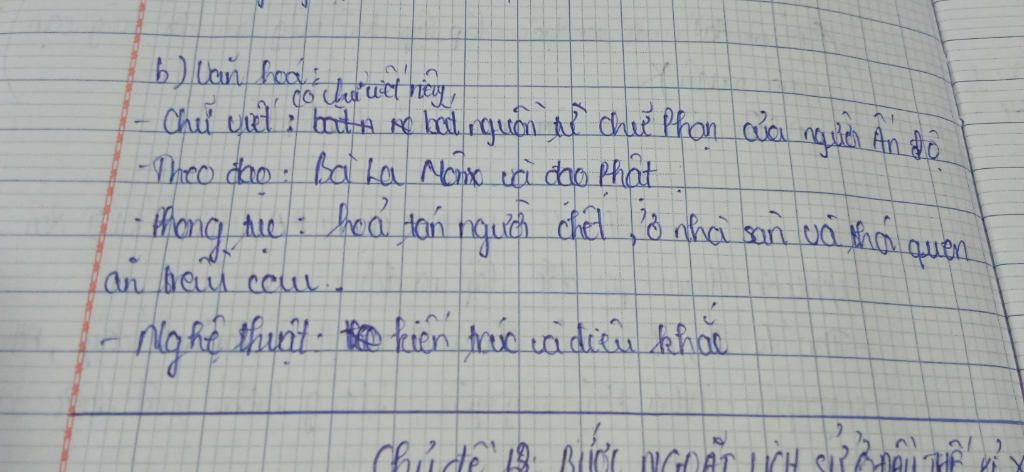 b) Văn hoá:
có chữ viết riêng,
- Chữ viết: bắt nguồn từ chữ Phạn của người Ấn độ
- Theo đạo: Bà La Môn và đạo Phật.
- Phong tục: hoả tán người chết, ở nhà sàn và thói quen
ăn trầu cau..
- Nghệ thuật: kiến trúc và điêu khắc
Chủ đề BƯỚC NGOẶT LỊCH SỬ Ở ĐẦU THẾ KỈ X